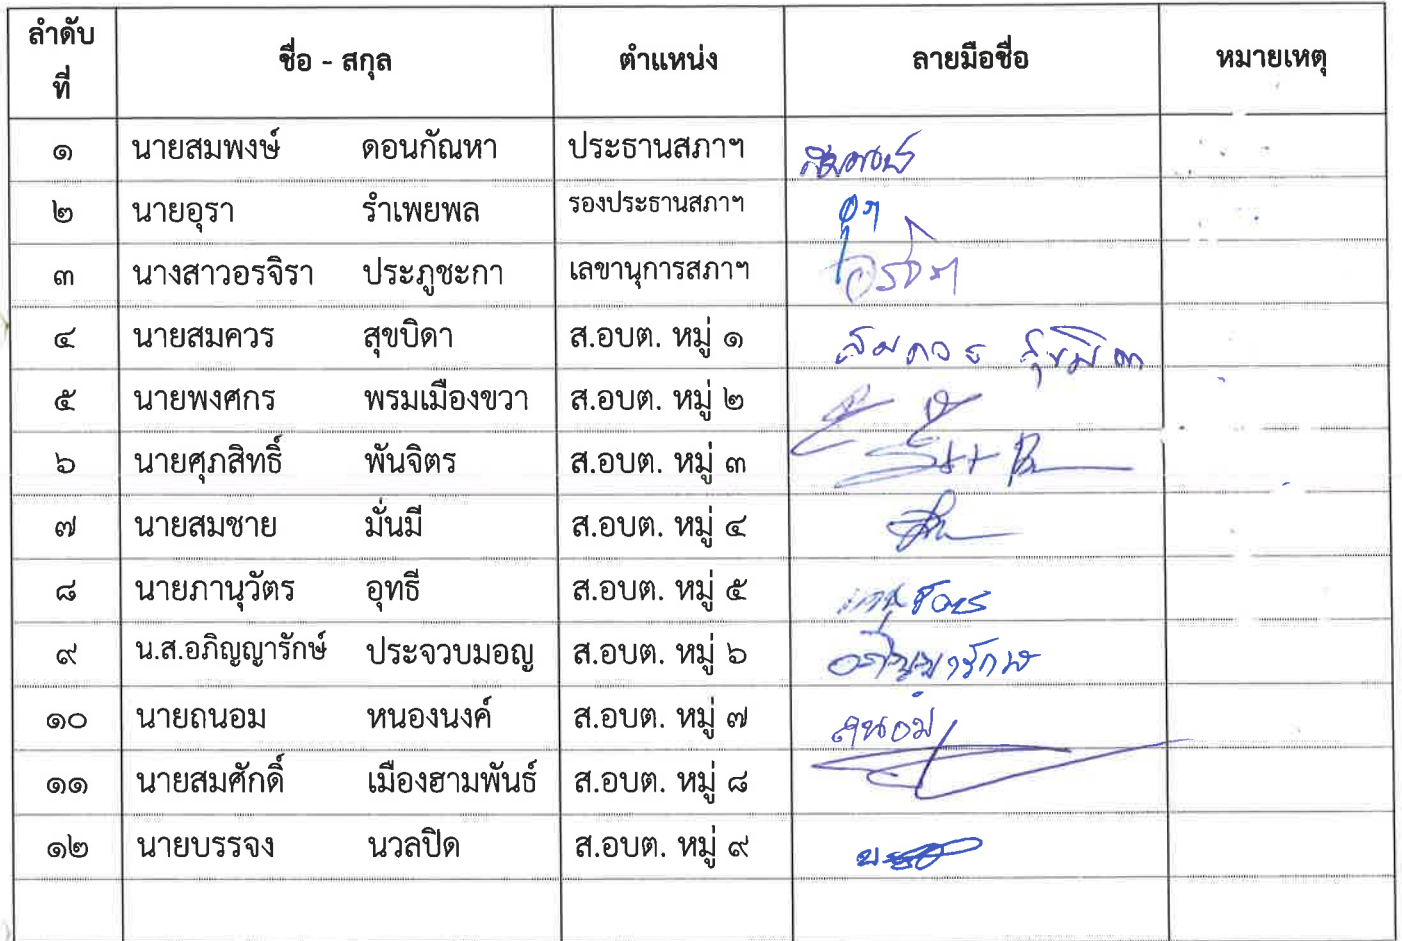 ลำดับที่ ชื่อ - สกุล ตำแหน่ง ลายมือชื่อ หมายเหตุ
๑ นายสมพงษ์ ดอนกัณหา ประธานสภาฯ สมพงษ์
๒ นายอุรา รำเพยพล รองประธานสภาฯ อุรา
๓ นางสาวอรจิรา ประภูชะกา เลขานุการสภาฯ อรจิรา
๔ นายสมควร สุขบิดา ส.อบต. หมู่ ๑ สมควร สุขบิดา
๕ นายพงศกร พรมเมืองขวา ส.อบต. หมู่ ๒
๖ นายศุภสิทธิ์ พันจิตร ส.อบต. หมู่ ๓
๗ นายสมชาย มั่นมี ส.อบต. หมู่ ๔
๘ นายภานุวัตร อุทธี ส.อบต. หมู่ ๕
๙ น.ส.อภิญญารักษ์ ประจวบมอญ ส.อบต. หมู่ ๖ อภิญญารักษ์
๑๐ นายถนอม หนองนงค์ ส.อบต. หมู่ ๗ ถนอม
๑๑ นายสมศักดิ์ เมืองฮามพันธ์ ส.อบต. หมู่ ๘
๑๒ นายบรรจง นวลปิด ส.อบต. หมู่ ๙